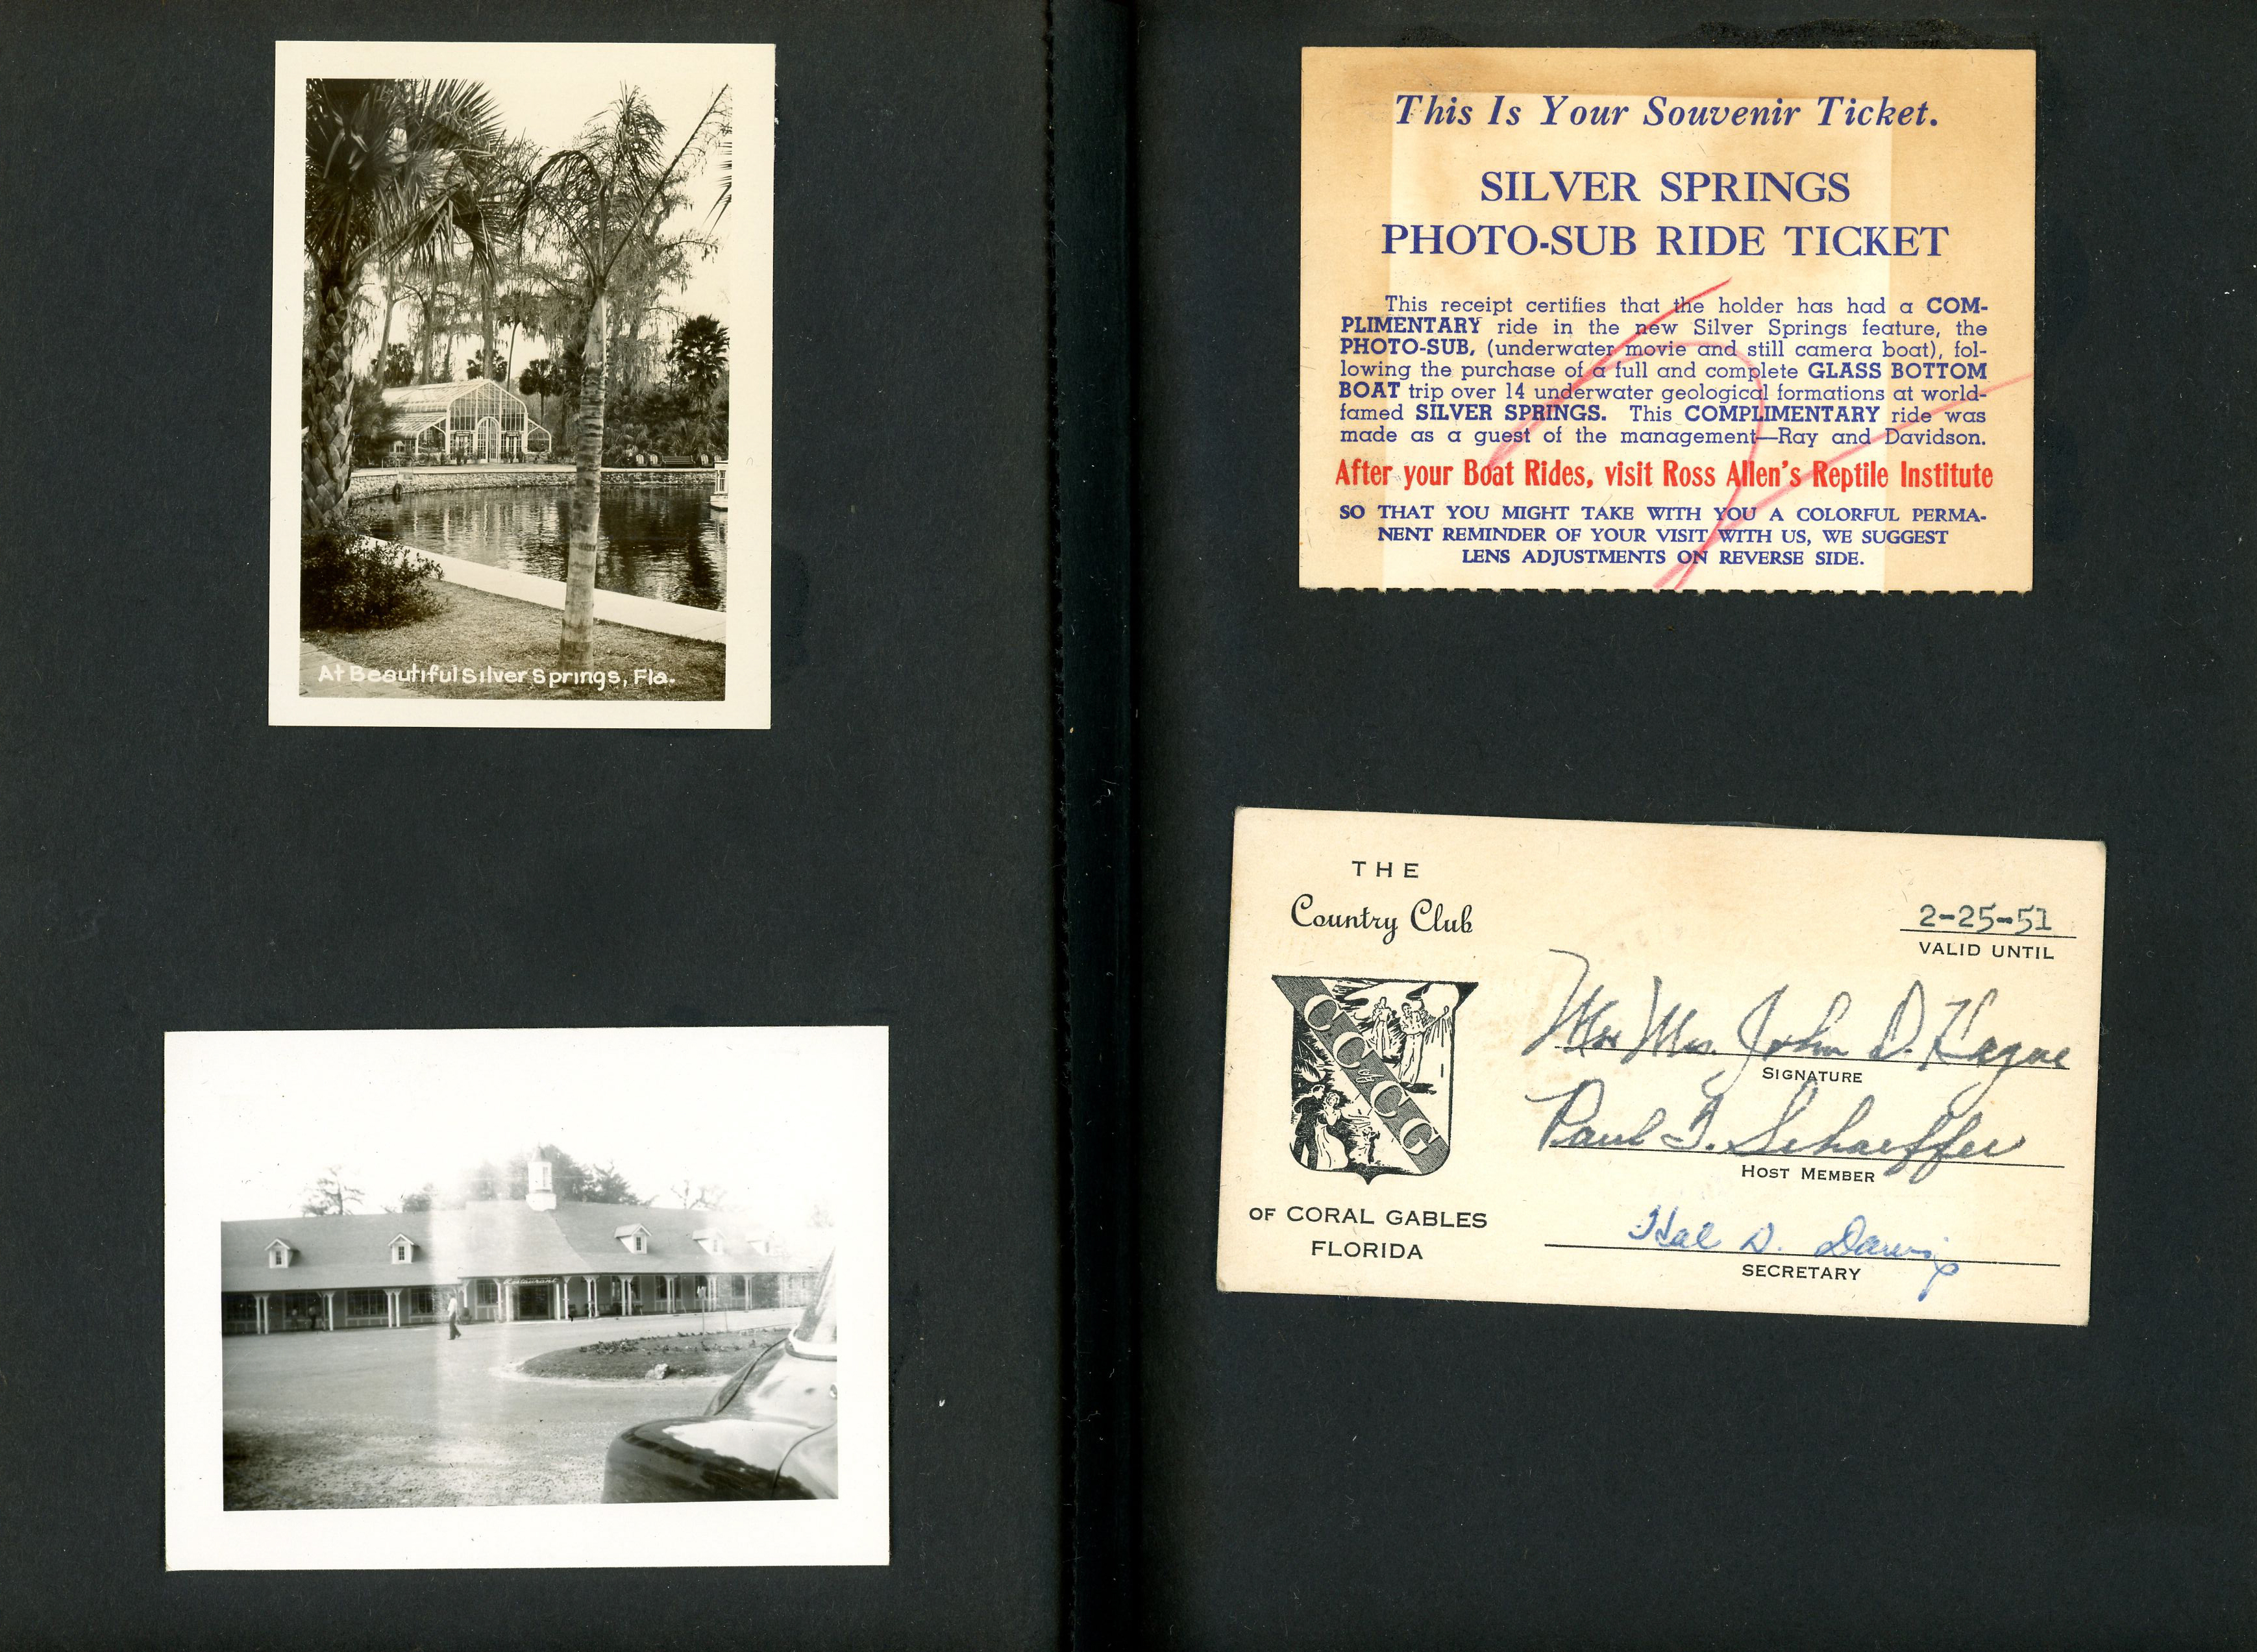 At Beautiful Silver Springs, Fla.
Restaurant
This Is Your Souvenir Ticket.
SILVER SPRINGS
PHOTO-SUB RIDE TICKET
This receipt certifies that the holder has had a COM-
PLIMENTARY ride in the new Silver Springs feature, the
PHOTO-SUB, (underwater movie and still camera boat), fol-
lowing the purchase of a full and complete GLASS BOTTOM
BOAT trip over 14 underwater geological formations at world-
famed SILVER SPRINGS. This COMPLIMENTARY ride was
made as a guest of the management—Ray and Davidson.
After your Boat Rides, visit Ross Allen's Reptile Institute
SO THAT YOU MIGHT TAKE WITH YOU A COLORFUL PERMA-
NENT REMINDER OF YOUR VISIT WITH US, WE SUGGEST
LENS ADJUSTMENTS ON REVERSE SIDE.
THE
Country Club
CC of CG
OF CORAL GABLES
FLORIDA
2-25-51
VALID UNTIL
Mrs. John D. Hague
SIGNATURE
Paul F. Schaeffer
HOST MEMBER
Hal D.
SECRETARY